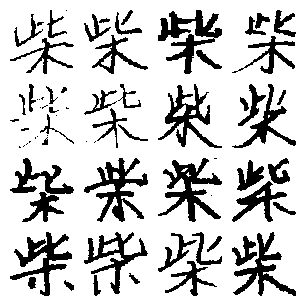 柴柴柴柴
柴柴柴柴
柴柴柴柴
柴柴柴柴